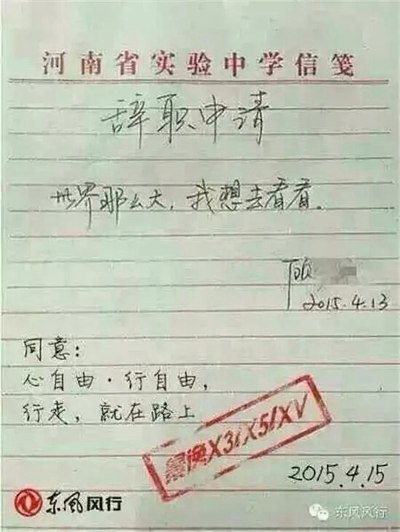 河南省实验中学信笺
辞职申请
世界那么大，我想去看看。
顾
2015.4.13
同意：
心自由·行自由，
行走，就在路上
景逸X3/X5/XV
2015.4.15
东风风行
东风风行